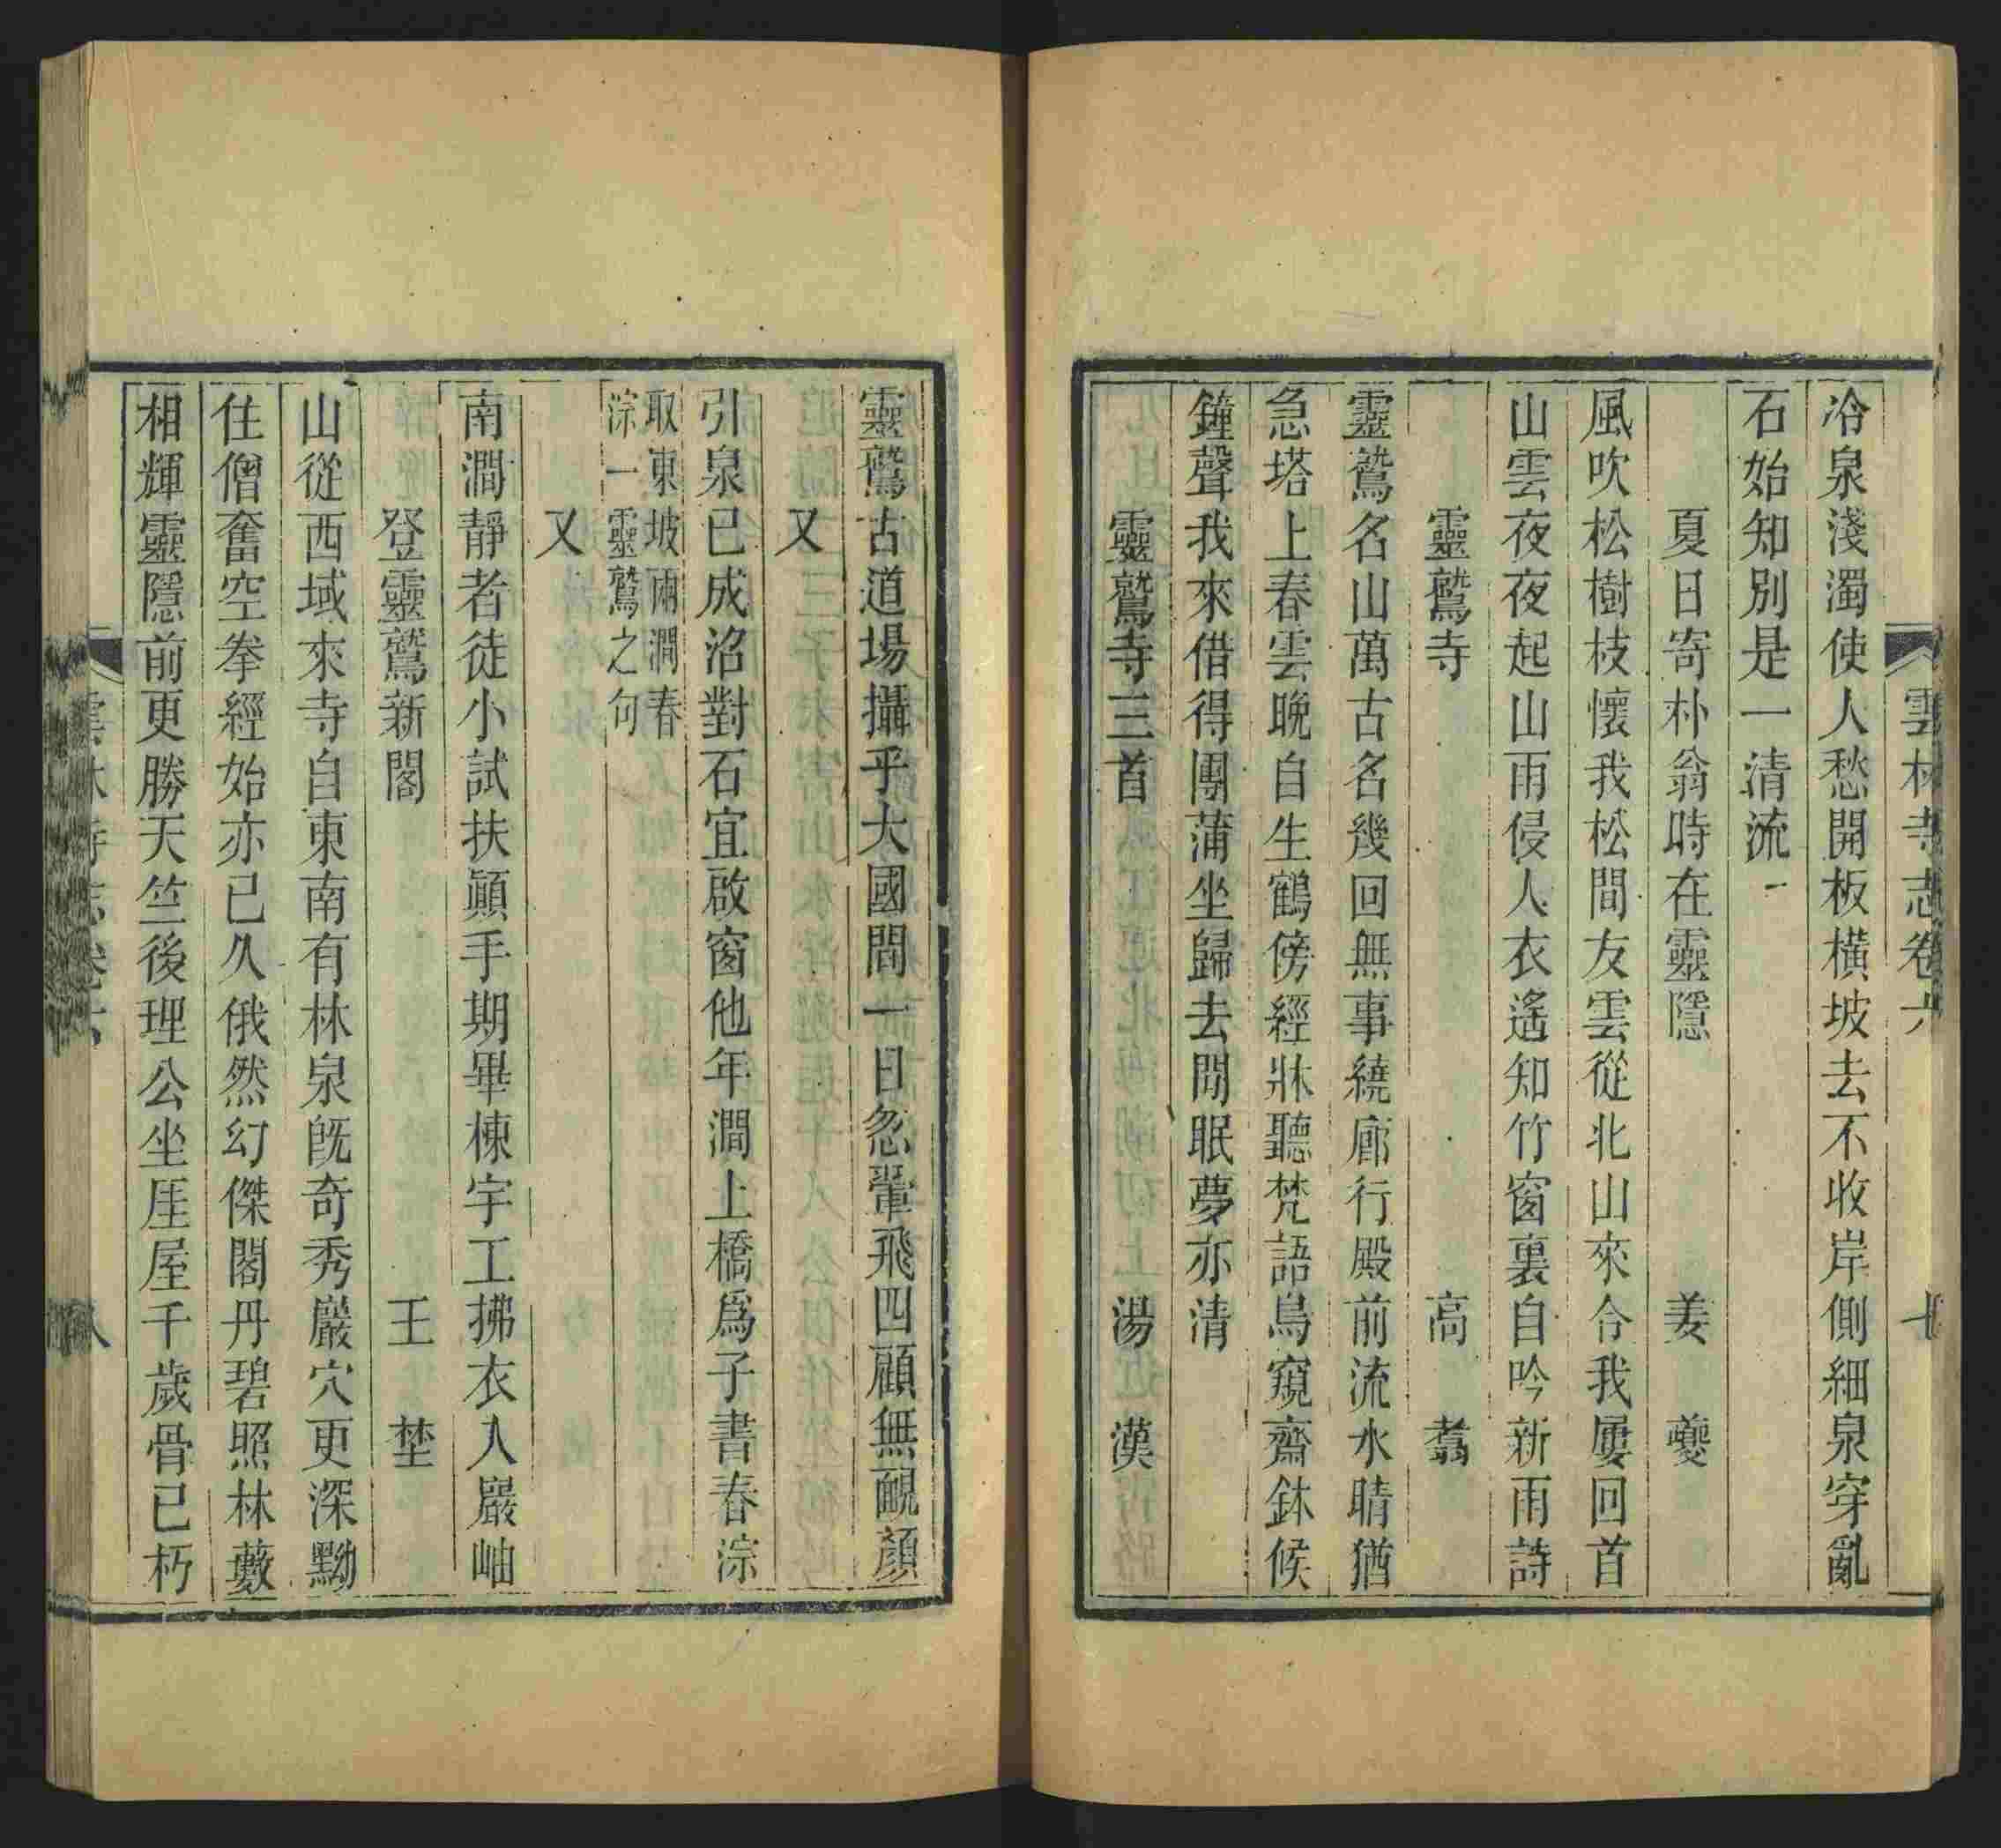 雲林寺志卷六 七
冷泉淺濁使人愁開板橫坡去不收岸側細泉穿亂
石始知別是一清流
夏日寄朴翁時在靈隱 姜夔
風吹松樹枝懷我松間友雲從北山來合我屢回首
山雲夜夜起山雨侵人衣遙知竹窗裏自吟新雨詩
靈鷲寺 高翥
靈鷲名山萬古名幾回無事繞廊行殿前流水晴猶
急塔上春雲晚自生鶴傍經牀聽梵語鳥窺齋鉢候
鐘聲我來借得團蒲坐歸去閒眠夢亦清
靈鷲寺三首 湯漢
靈鷲古道場攝乎大國間一日忽翬飛四顧無靦顏
又
引泉已成沼對石宜啟窗他年澗上橋爲子書春淙
取東坡兩澗春
淙一靈鷲之句
又
南澗靜者徒小試扶顚手期畢棟宇工拂衣入巖岫
登靈鷲新閣 王埜
山從西域來寺自東南有林泉旣奇秀巖穴更深黝
住僧奮空拳經始亦已久俄然幻傑閣丹碧照林藪
相輝靈隱前更勝天竺後理公坐厓屋千歲骨已朽
雲林寺志卷六 八